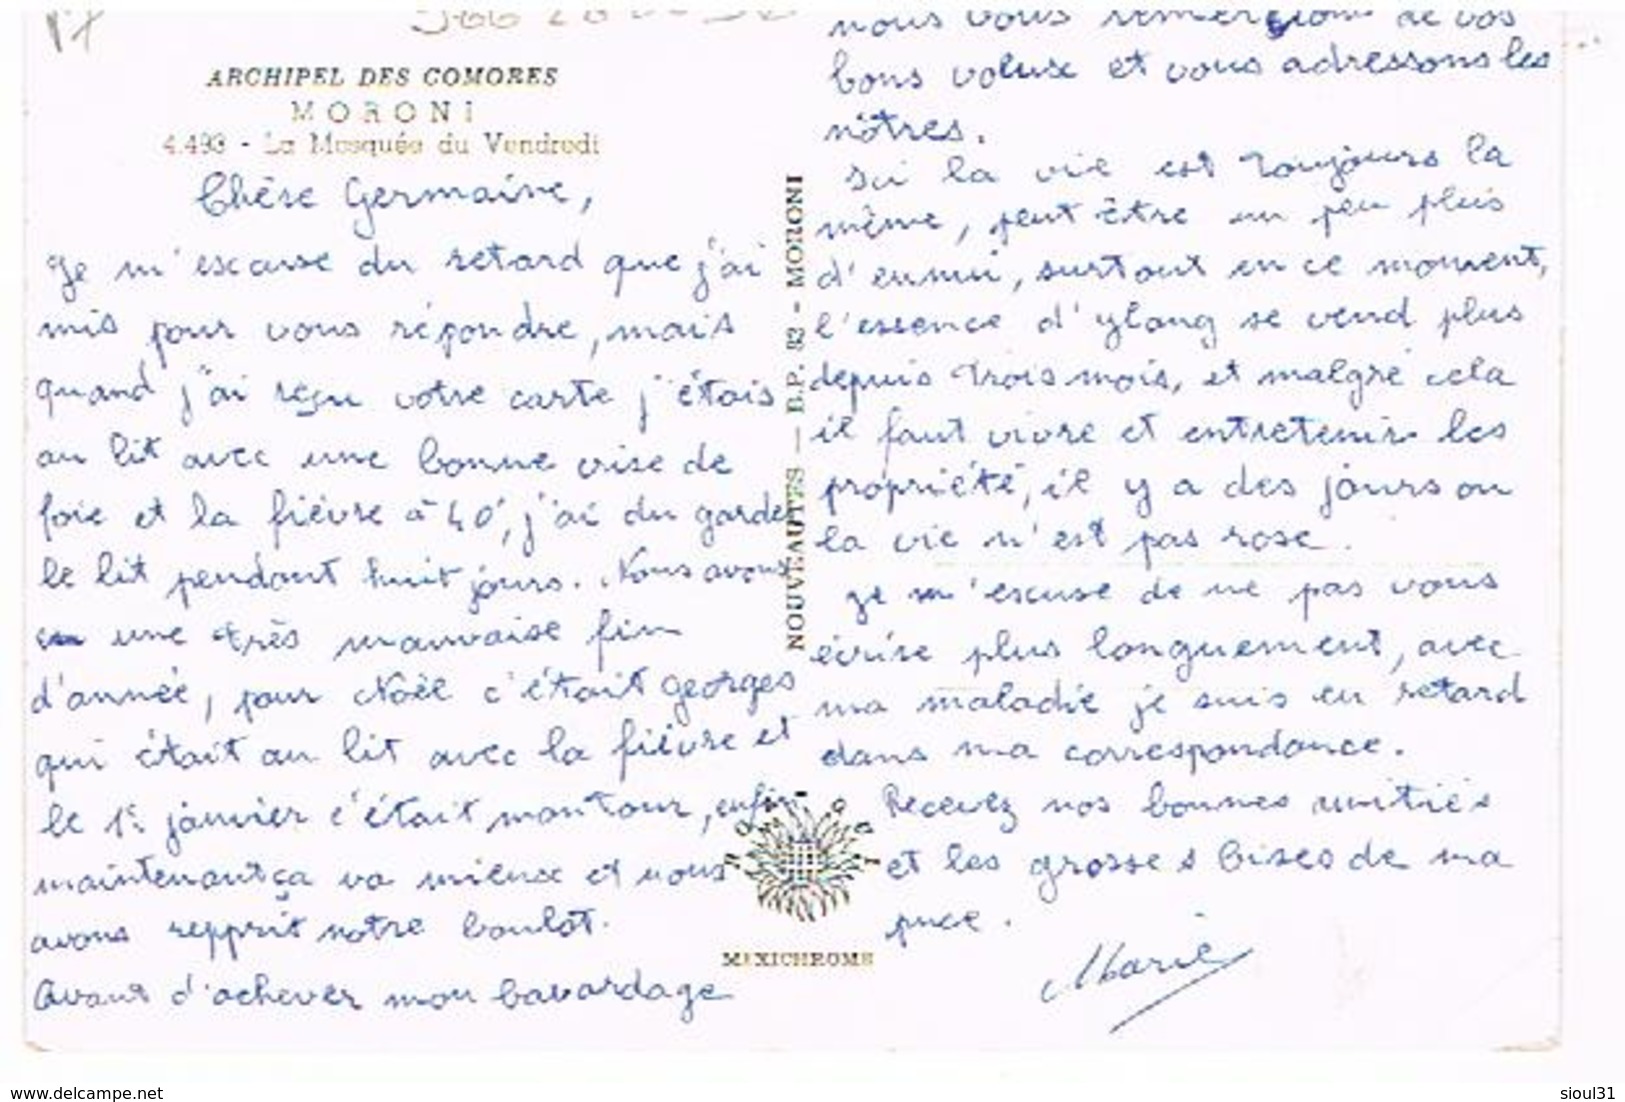 ARCHIPEL DES COMORES
MORONI
4.493 - La Mosquée du Vendredi
Chère Germaine,
Je m'excuse du retard que j'ai
mis pour vous répondre, mais
quand j'ai reçu votre carte j'étais
au lit avec une bonne crise de
foie et la fièvre à 40°, j'ai du garder
le lit pendant huit jours. Nous avons
eu une très mauvaise fin
d'année, pour Noël c'était Georges
qui était au lit avec la fièvre et
le 1er janvier c'était mon tour, enfin
maintenant ça va mieux et nous
avons repprit notre boulot.
Avant d'achever mon bavardage
nous vous remercions de vos
bons voeux et vous adressons les
nôtres.
Ici la vie est toujours la
même, peut être un peu plus
d'ennui, surtout en ce moment,
l'essence d'ylang se vend plus
depuis trois mois, et malgré cela
il faut vivre et entretenir les
propriété, il y a des jours ou
la vie n'est pas rose.
Je m'escuse de ne pas vous
écrire plus longuement, avec
ma maladie je suis en retard
dans ma correspondance.
Recevez nos bonnes amitiés
et les grosses bises de ma
puce.
Marie
NOUVEAUTES — B.P. 83 - MORONI
MEXICHROME
www.delcampe.net
sioul31